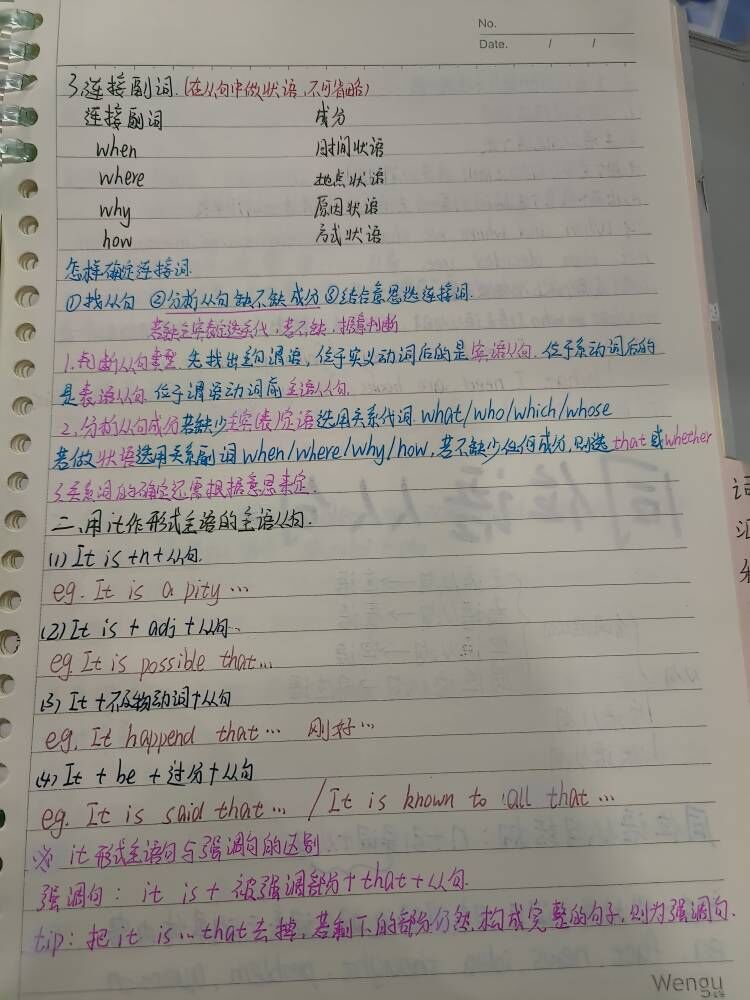 No.
Date. / /
3.连接副词.(在从句中做状语,不可省略)
连接副词 成分
when 时间状语
where 地点状语
why 原因状语
how 方式状语
怎样确定连接词.
①找从句 ②分析从句缺不缺成分 ③结合意思选连接词.
若缺主宾表定选系代,若不缺,据意判断
1.判断从句类型 先找出主句谓语,位于实义动词后的是宾语从句,位于系动词后的
是表语从句 位于谓语动词前主语从句.
2.分析从句成分若缺少主宾(表)定语选用关系代词 what/who/which/whose
若做状语选用关系副词when/where/why/how,若不缺少任何成分,则选that或whether
3.关系词的确定还需根据意思来定.
二、用it作形式主语的主语从句.
(1) It is +n+从句.
eg. It is a pity …
(2) It is + adj +从句.
eg. It is possible that…
(3) It +不及物动词+从句
eg. It happend that… 刚好…
(4) It + be + 过分+从句
eg. It is said that… / It is known to all that …
※ it形式主语句与强调句的区别
强调句: it is + 被强调部分+that+从句.
tip: 把it is…that去掉,若剩下的部分仍然构成完整的句子,则为强调句.
Wengu
词
汇